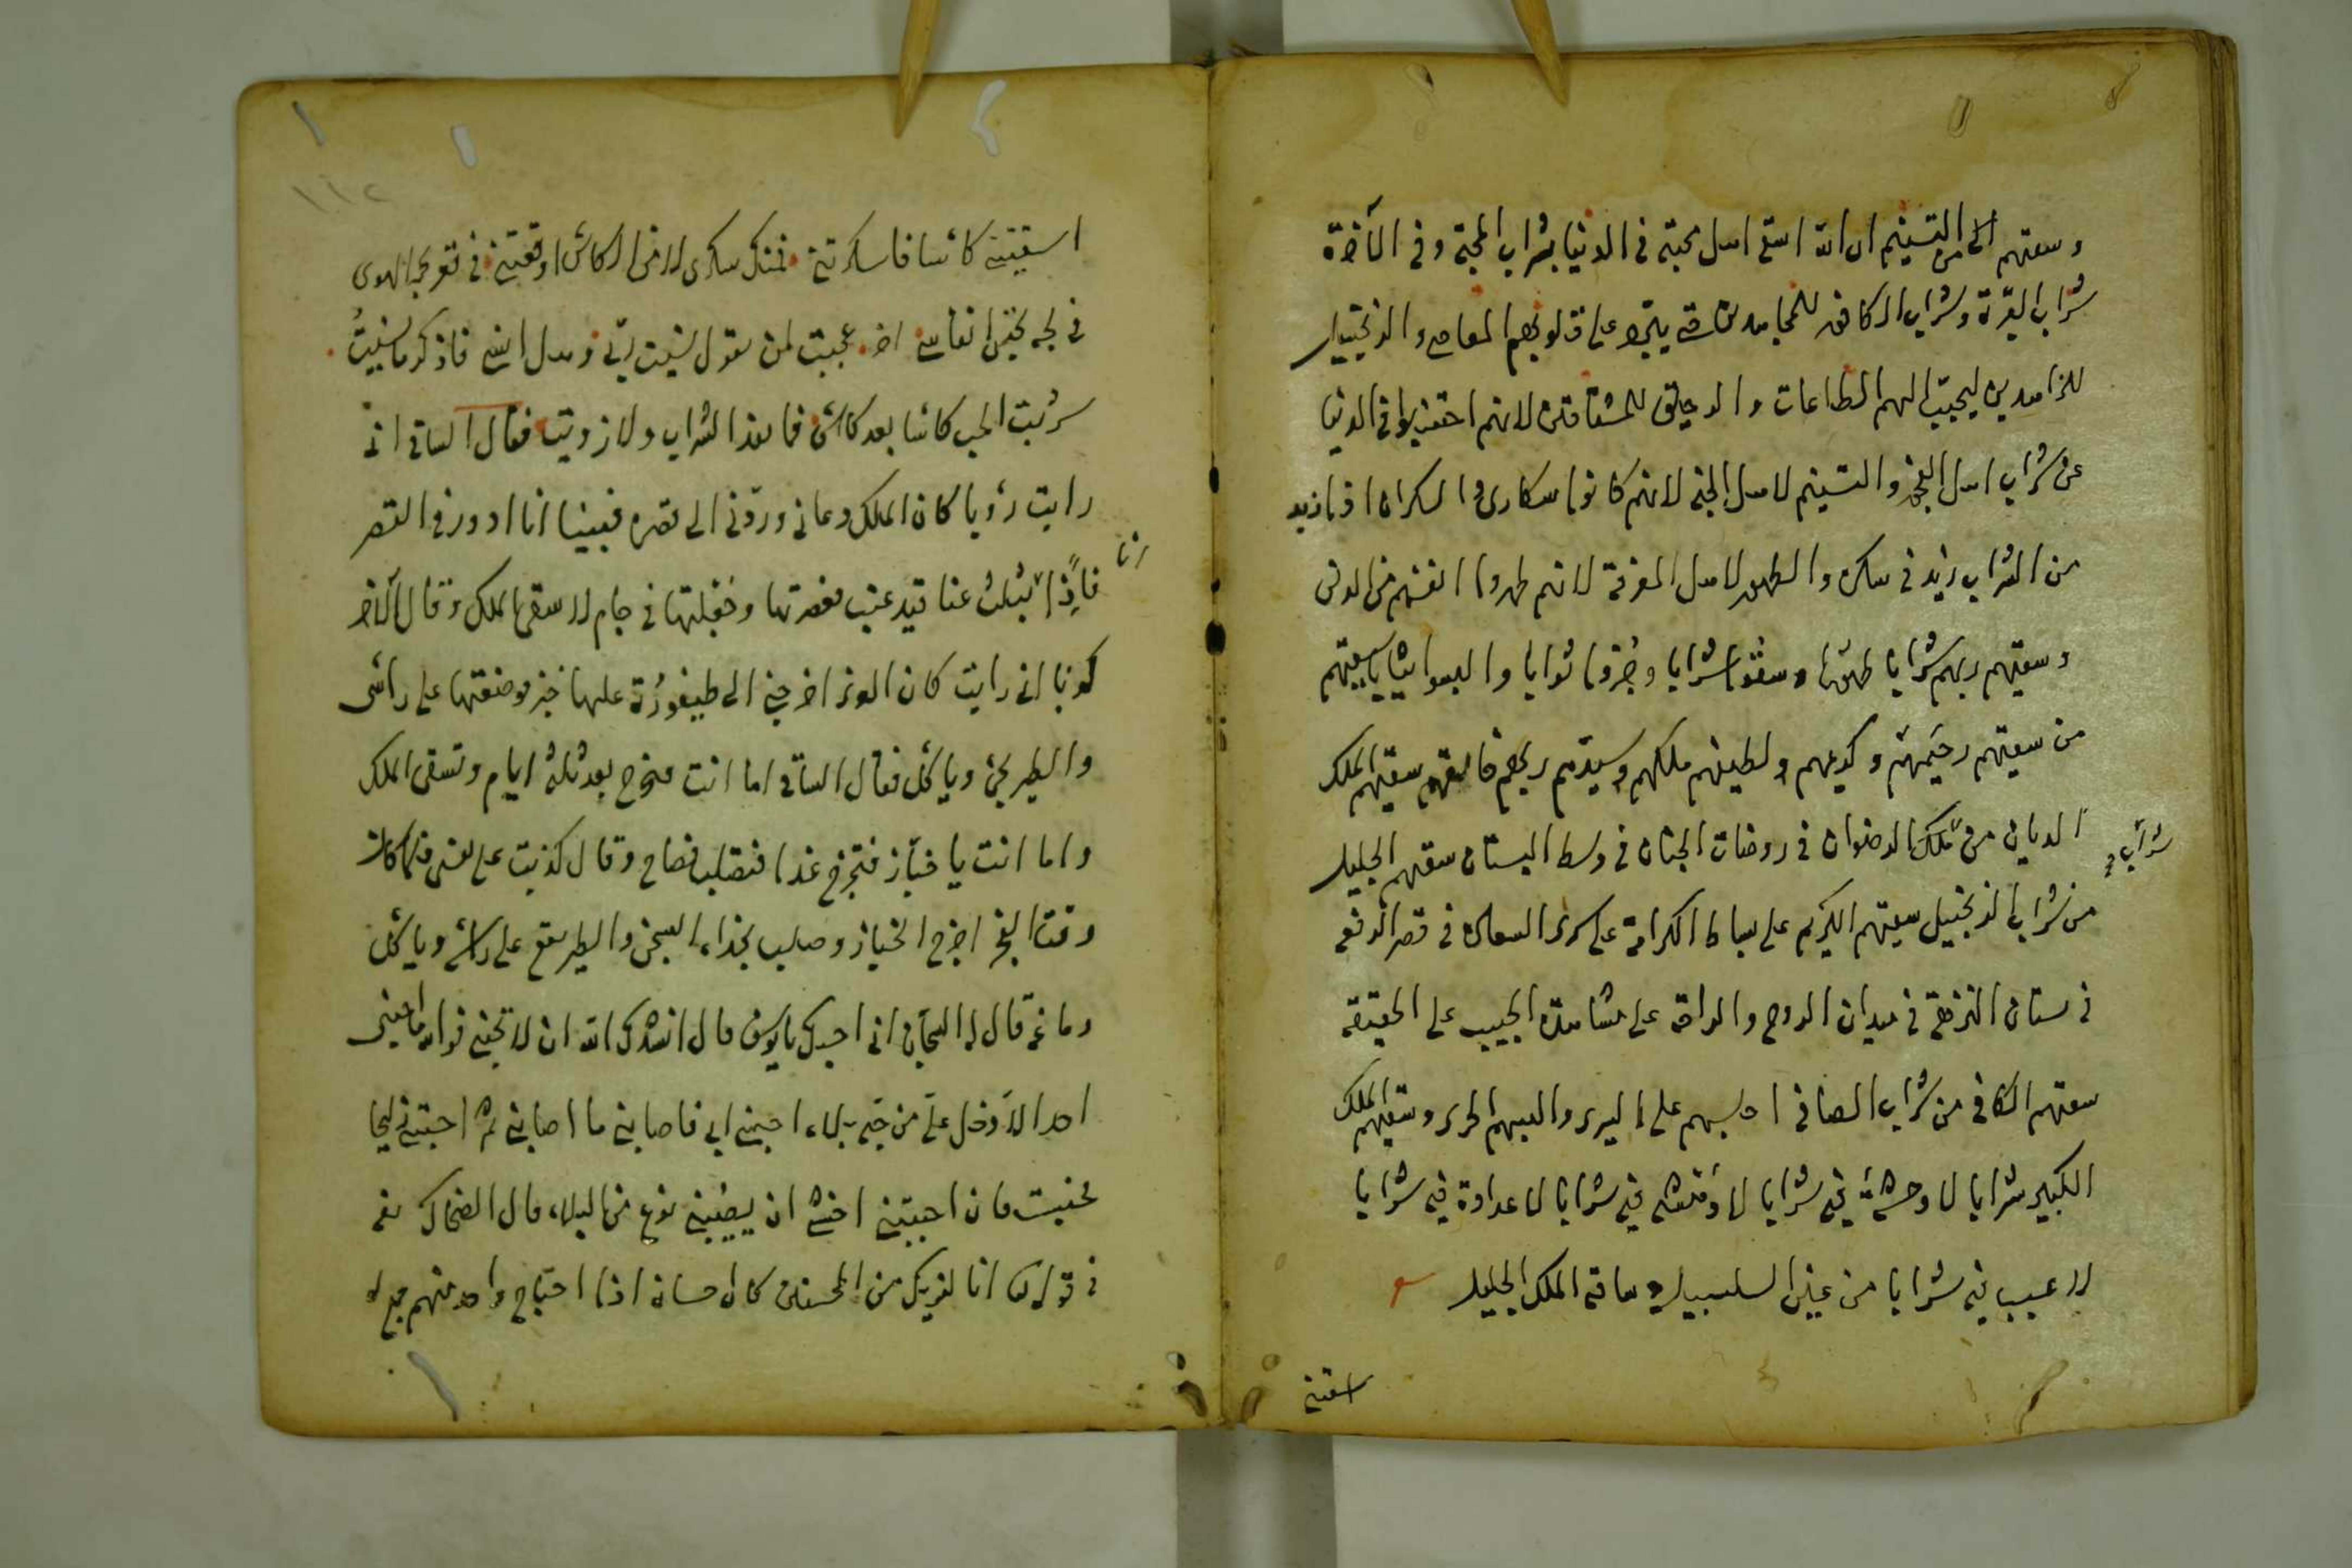 وسقيهم من التسنيم ان الله اسقى اهل محبته فى الدنيا بشراب المحبة وفى الآخرة
شراب القربة وشراب الكافور للمجاهدين حتى يبرد على قلوبهم المعاصى والزنجبيل
للزاهدين ليحبب اليهم الطاعات والرحيق للمشتاقين لانهم اجتنبوا فى الدنيا
عن شراب اهل الفجر والتسنيم لاهل الجنة لانهم كانوا سكارى والسكران اذا زيد
من الشراب زيد فى سكره والطهور لاهل المعرفة لانهم طهروا انفسهم من
وسقيهم ربهم شرابا طهورا وسقوا شرابا وجزوا ثوابا والبسوا ثيابا سقيهم
من سقيهم رحيمهم وكريمهم ولطيفهم ملكهم وسيدهم ربهم سقيهم الملك
الديان من تلك الرضوان فى روضات الجنان فى وسط البستان سقيهم الجليل
شراب
من شراب الزنجبيل سقيهم الكريم على بساط الكرامة على السعادة فى قصر
فى بستان النزهة فى ميدان الروح والراحة على مشاهدة الحبيب على الحقيقة
سقيهم الكافى من شراب الصافى اجلسهم على السرير والبسهم الحرير وسقيهم الملك
الكبير شرابا لا وحشة فيه شرابا لا فيه شرابا لا عداوة فيه شرابا
لا عيب فيه شرابا من عين السلسبيل ساقيه الملك الجليل
اسقيتنى
١١٢
اسقيتنى كاسا فاسكرتنى فمنك سكرى لا من الكاس اوقعتنى فى قعر بحر الهوى
فى لجة انفاسى اخر عجبت لمن يقول نسيت ربى وهل انسى فاذكر ما نسيت
شربت الحب كاسا بعد كاس فما نفد الشراب ولا رويت فقال الساقى انى
رايت رؤيا كان الملك دعانى وردنى الى قصره فبينا انا ادور فى القصر
انا
فاذا بثلث عناقيد عنب فعصرتها وجعلتها فى جام لاسقى الملك وقال الآخر
كذبا انى رايت كان اخرجنى الى طيفورة عليها خبز موضعتها على راسى
والطير يجئ وياكل فقال الساقى اما انت فتخرج بعد ثلثة ايام وتسقى الملك
واما انت يا خباز فتخرج غدا فتصلب فصاح وقال كذبت على نفسى فلما كان
وقت الفجر اخرج الخباز وصلب بحذاء السجن والطير يقع على راسه وياكل
دماغه قال له السجان انى احبك يا يوسف قال انشدك الله ان لا تحبنى فوالله ما احبنى
احد الا دخل على من حبه بلاء احبنى ابى فاصابنى ما اصابنى ثم احبتنى زليخا
فحبست فان احببتنى اخشى ان يصيبنى نوع من البلاء قال الضحاك
فى قوله انا نريك من المحسنين كان احسانه اذا احتاج واحد منهم جمع له